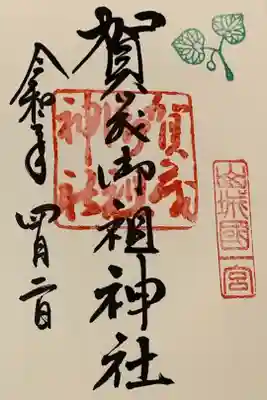 山城國一宮
賀茂御祖神社
賀茂
御祖
神社
令和年四月二日